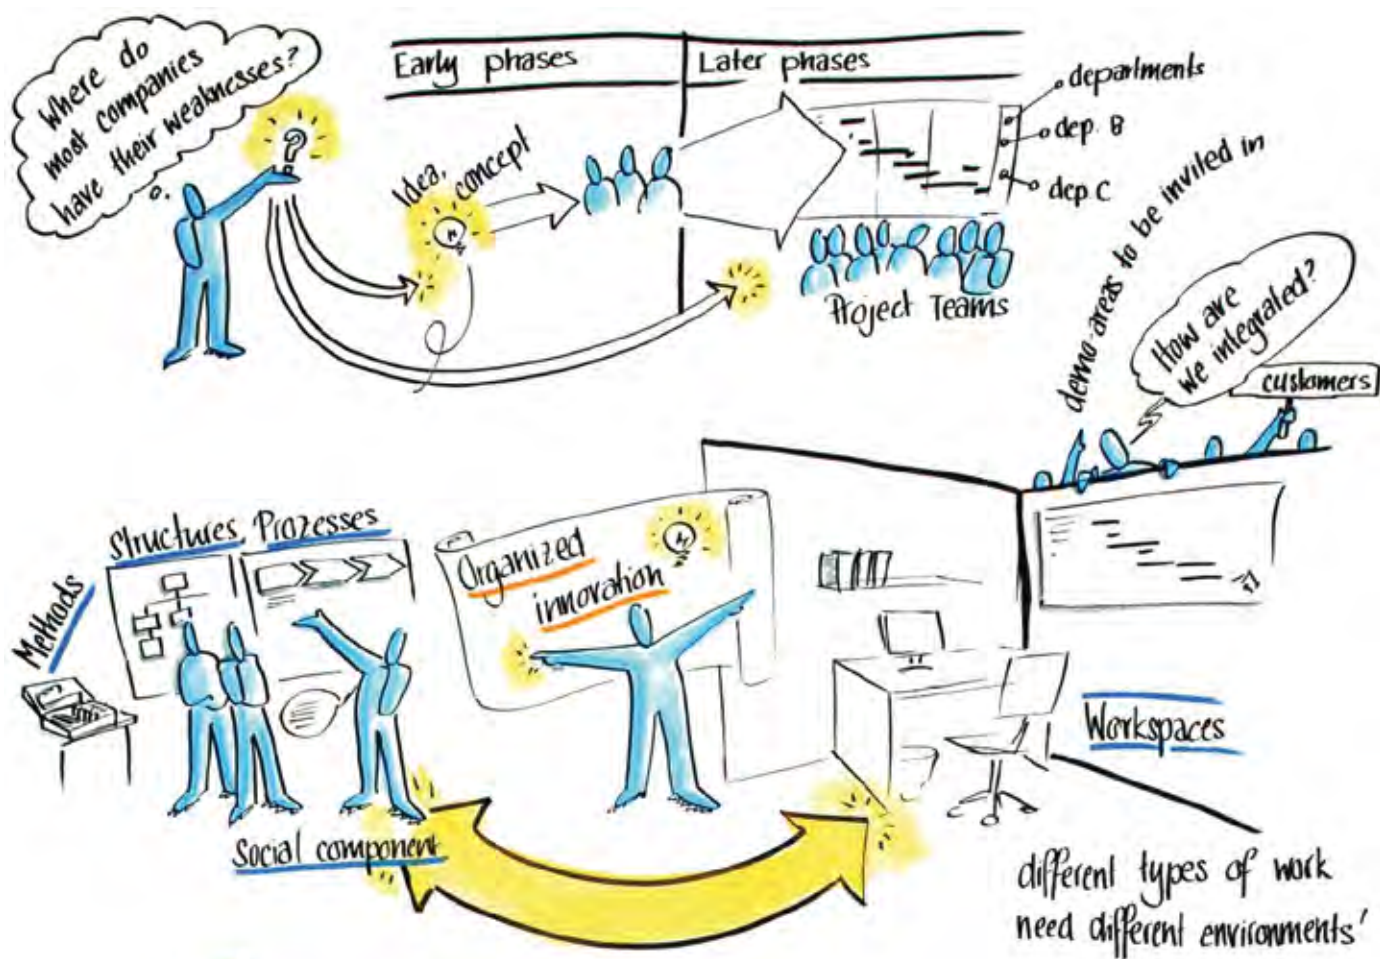 Where do
most companies
have their weaknesses?
?
Early phases
Later phases
Idea,
concept
departments
dep. B
dep C
Project Teams
demo-areas to be invited in
How are
we integrated?
customers
Methods
Structures, Prozesses
Organized
innovation
Social component
Workspaces
different types of work
need different environments'